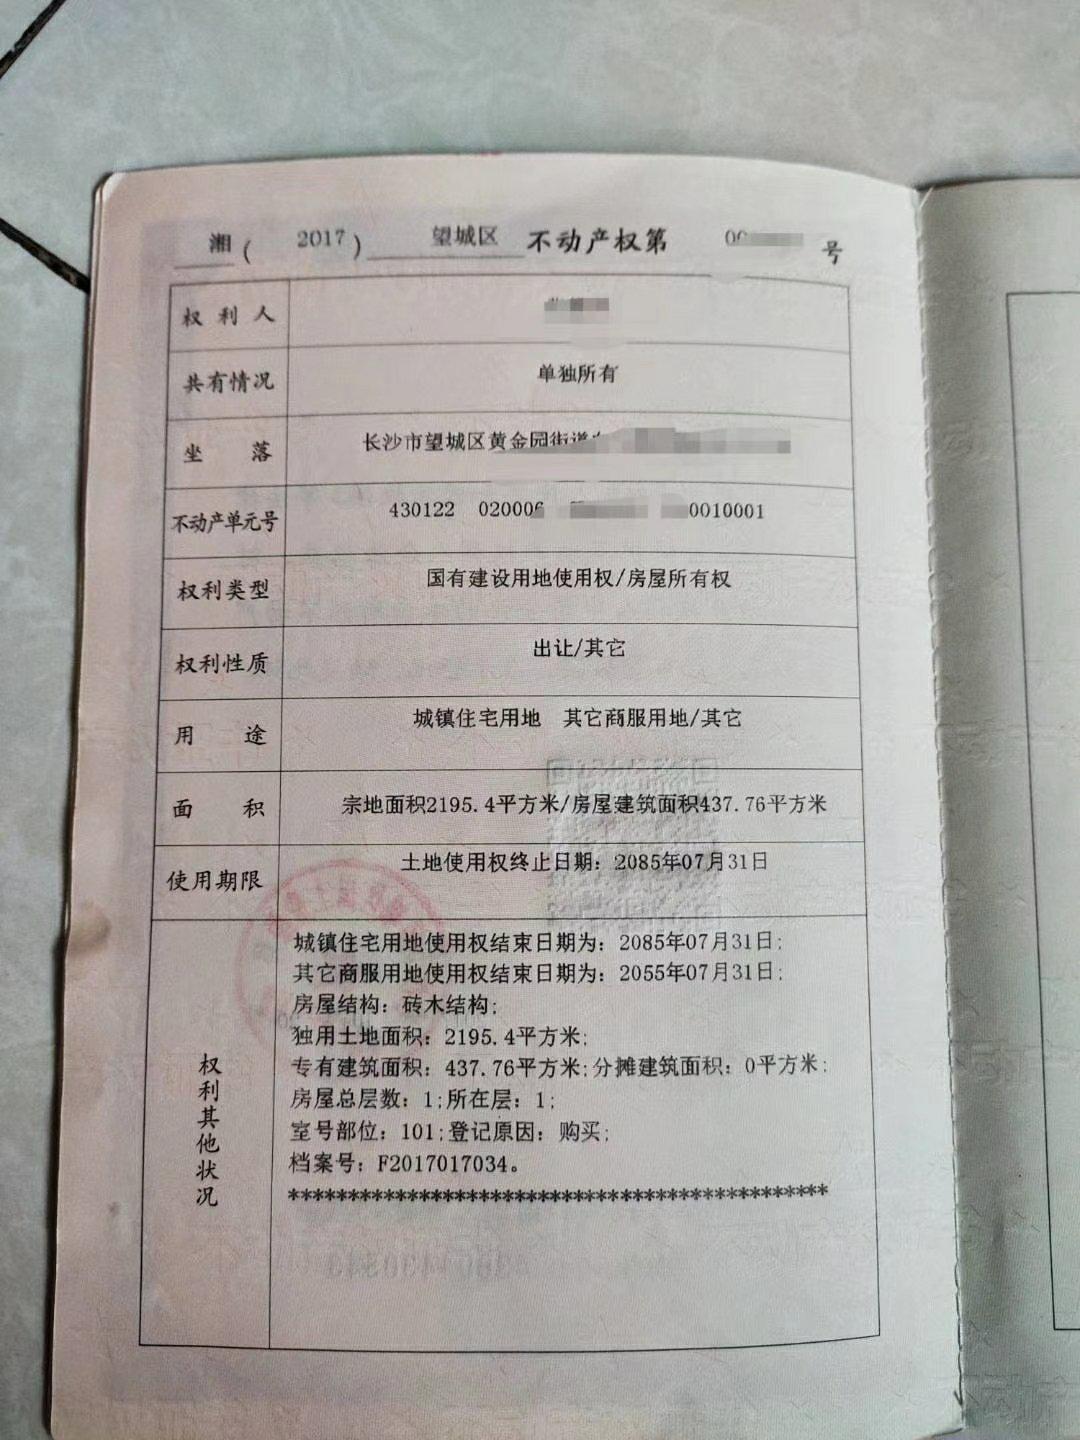 湘( 2017 ) 望城区 不动产权第 号
权利人
共有情况 单独所有
坐落 长沙市望城区黄金园街道
不动产单元号 430122 020006 0010001
权利类型 国有建设用地使用权/房屋所有权
权利性质 出让/其它
用途 城镇住宅用地 其它商服用地/其它
面积 宗地面积2195.4平方米/房屋建筑面积437.76平方米
使用期限 土地使用权终止日期：2085年07月31日
权利其他状况
城镇住宅用地使用权结束日期为：2085年07月31日;
其它商服用地使用权结束日期为：2055年07月31日;
房屋结构：砖木结构;
独用土地面积：2195.4平方米;
专有建筑面积：437.76平方米;分摊建筑面积：0平方米;
房屋总层数：1;所在层：1;
室号部位：101;登记原因：购买;
档案号：F2017017034。
***********************************************